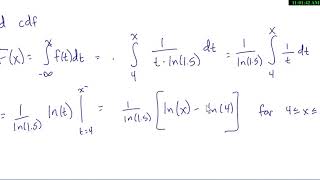 11:01:42 AM
d cdf
F(x) = ∫_{-∞}^{x} f(t)dt = . ∫_{4}^{x} 1/(t·ln(1.5)) dt = 1/ln(1.5) ∫_{4}^{x} 1/t dt
= 1/ln(1.5) ln(t) |_{t=4}^{x} = 1/ln(1.5) [ln(x) - ln(4)] for 4 ≤ x ≤